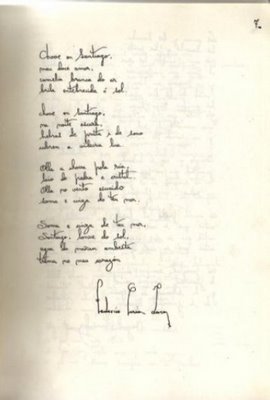 7.
Chove en Santiago,
meu doce amor,
camelia branca do ar
brila entebrecida ó sol.
chove en Santiago,
na noite escura,
herbas de prata e de sono
cobren a valeira lúa.
Olla a choiva pola rúa,
laio de pedra e cristal.
Olla no vento esvaido
soma e cinza do teu mar.
Soma e cinza do teu mar,
Santiago, lonxe do sol,
agua da mañan
trema no meu corazón
Federico García Lorca